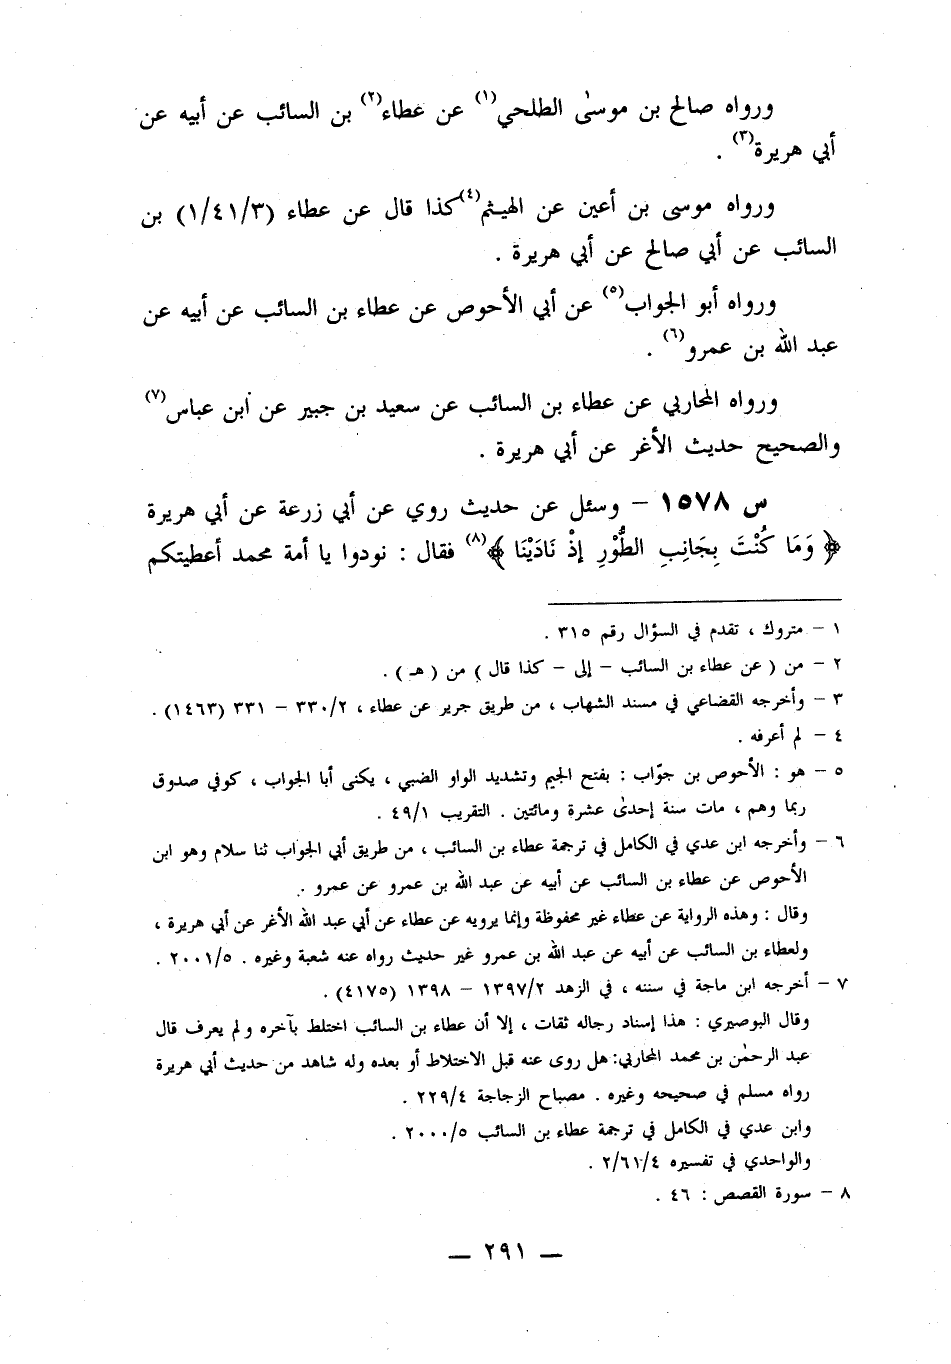 ورواه صالح بن موسىٰ الطلحي(١) عن عطاء(٢) بن السائب عن أبيه عن
أبي هريرة(٣) .
ورواه موسى بن أعين عن الهيثم(٤)كذا قال عن عطاء (١/٤١/٣) بن
السائب عن أبي صالح عن أبي هريرة .
ورواه أبو الجواب(٥) عن أبي الأحوص عن عطاء بن السائب عن أبيه عن
عبد الله بن عمرو(٦) .
ورواه المحاربي عن عطاء بن السائب عن سعيد بن جبير عن ابن عباس(٧)
والصحيح حديث الأغر عن أبي هريرة .
س ١٥٧٨ – وسئل عن حديث روي عن أبي زرعة عن أبي هريرة
﴿ وَمَا كُنْتَ بِجَانِبِ الطُّوْرِ إذْ نَادَيْنَا ﴾(٨) فقال : نودوا يا أمة محمد أعطيتكم
١ – متروك ، تقدم في السؤال رقم ٣١٥ .
٢ – من ( عن عطاء بن السائب – إلى – كذا قال ) من ( هـ ) .
٣ – وأخرجه القضاعي في مسند الشهاب ، من طريق جرير عن عطاء ، ٣٣٠/٢ – ٣٣١ (١٤٦٣) .
٤ – لم أعرفه .
٥ – هو : الأحوص بن جوّاب : بفتح الجيم وتشديد الواو الضبي ، يكنى أبا الجواب ، كوفي صدوق
ربما وهم ، مات سنة إحدىٰ عشرة ومائتين . التقريب ٤٩/١ .
٦ – وأخرجه ابن عدي في الكامل في ترجمة عطاء بن السائب ، من طريق أبي الجواب ثنا سلام وهو ابن
الأحوص عن عطاء بن السائب عن أبيه عن عبد الله بن عمرو عن عمرو .
وقال : وهذه الرواية عن عطاء غير محفوظة وإنما يرويه عن عطاء عن أبي عبد الله الأغر عن أبي هريرة ،
ولعطاء بن السائب عن أبيه عن عبد الله بن عمرو غير حديث رواه عنه شعبة وغيره . ٢٠٠١/٥ .
٧ – أخرجه ابن ماجة في سننه ، في الزهد ١٣٩٧/٢ – ١٣٩٨ (٤١٧٥) .
وقال البوصيري : هذا إسناد رجاله ثقات ، إلا أن عطاء بن السائب اختلط بآخره ولم يعرف قال
عبد الرحمٰن بن محمد المحاربي: هل روى عنه قبل الاختلاط أو بعده وله شاهد من حديث أبي هريرة
رواه مسلم في صحيحه وغيره . مصباح الزجاجة ٢٢٩/٤ .
وابن عدي في الكامل في ترجمة عطاء بن السائب ٢٠٠٠/٥ .
والواحدي في تفسيره ٢/٦١/٤ .
٨ – سورة القصص : ٤٦ .
— ٢٩١ —